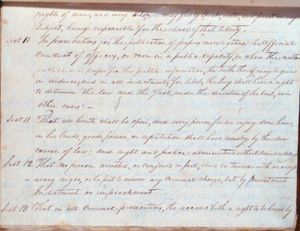 rights of man; and every
subject, being responsible for the abuse of that liberty.
Sect 10 In prosecutions for the publication of papers investigating the Official
Conduct of officers, or men in a public capacity, or where the matter
published is proper for the public information, the truth thereof may be given
in evidence, and in all indictments for libels, the Jury shall have a right
to determine the law and the facts, under the direction of the court, as in
other cases.
Sect 11 That all courts shall be open, and every person for an injury done him,
in his lands, goods, person, or reputation shall have remedy by the due
course of law; and right and justice administered without
Sect 12 That no person arrested, or confined in jail, shall be treated with
rigor, or be put to answer any Criminal charge, but by presentment
Indictment or impeachment
Sect 13 That in all Criminal prosecutions, the accused hath a right to be heard by